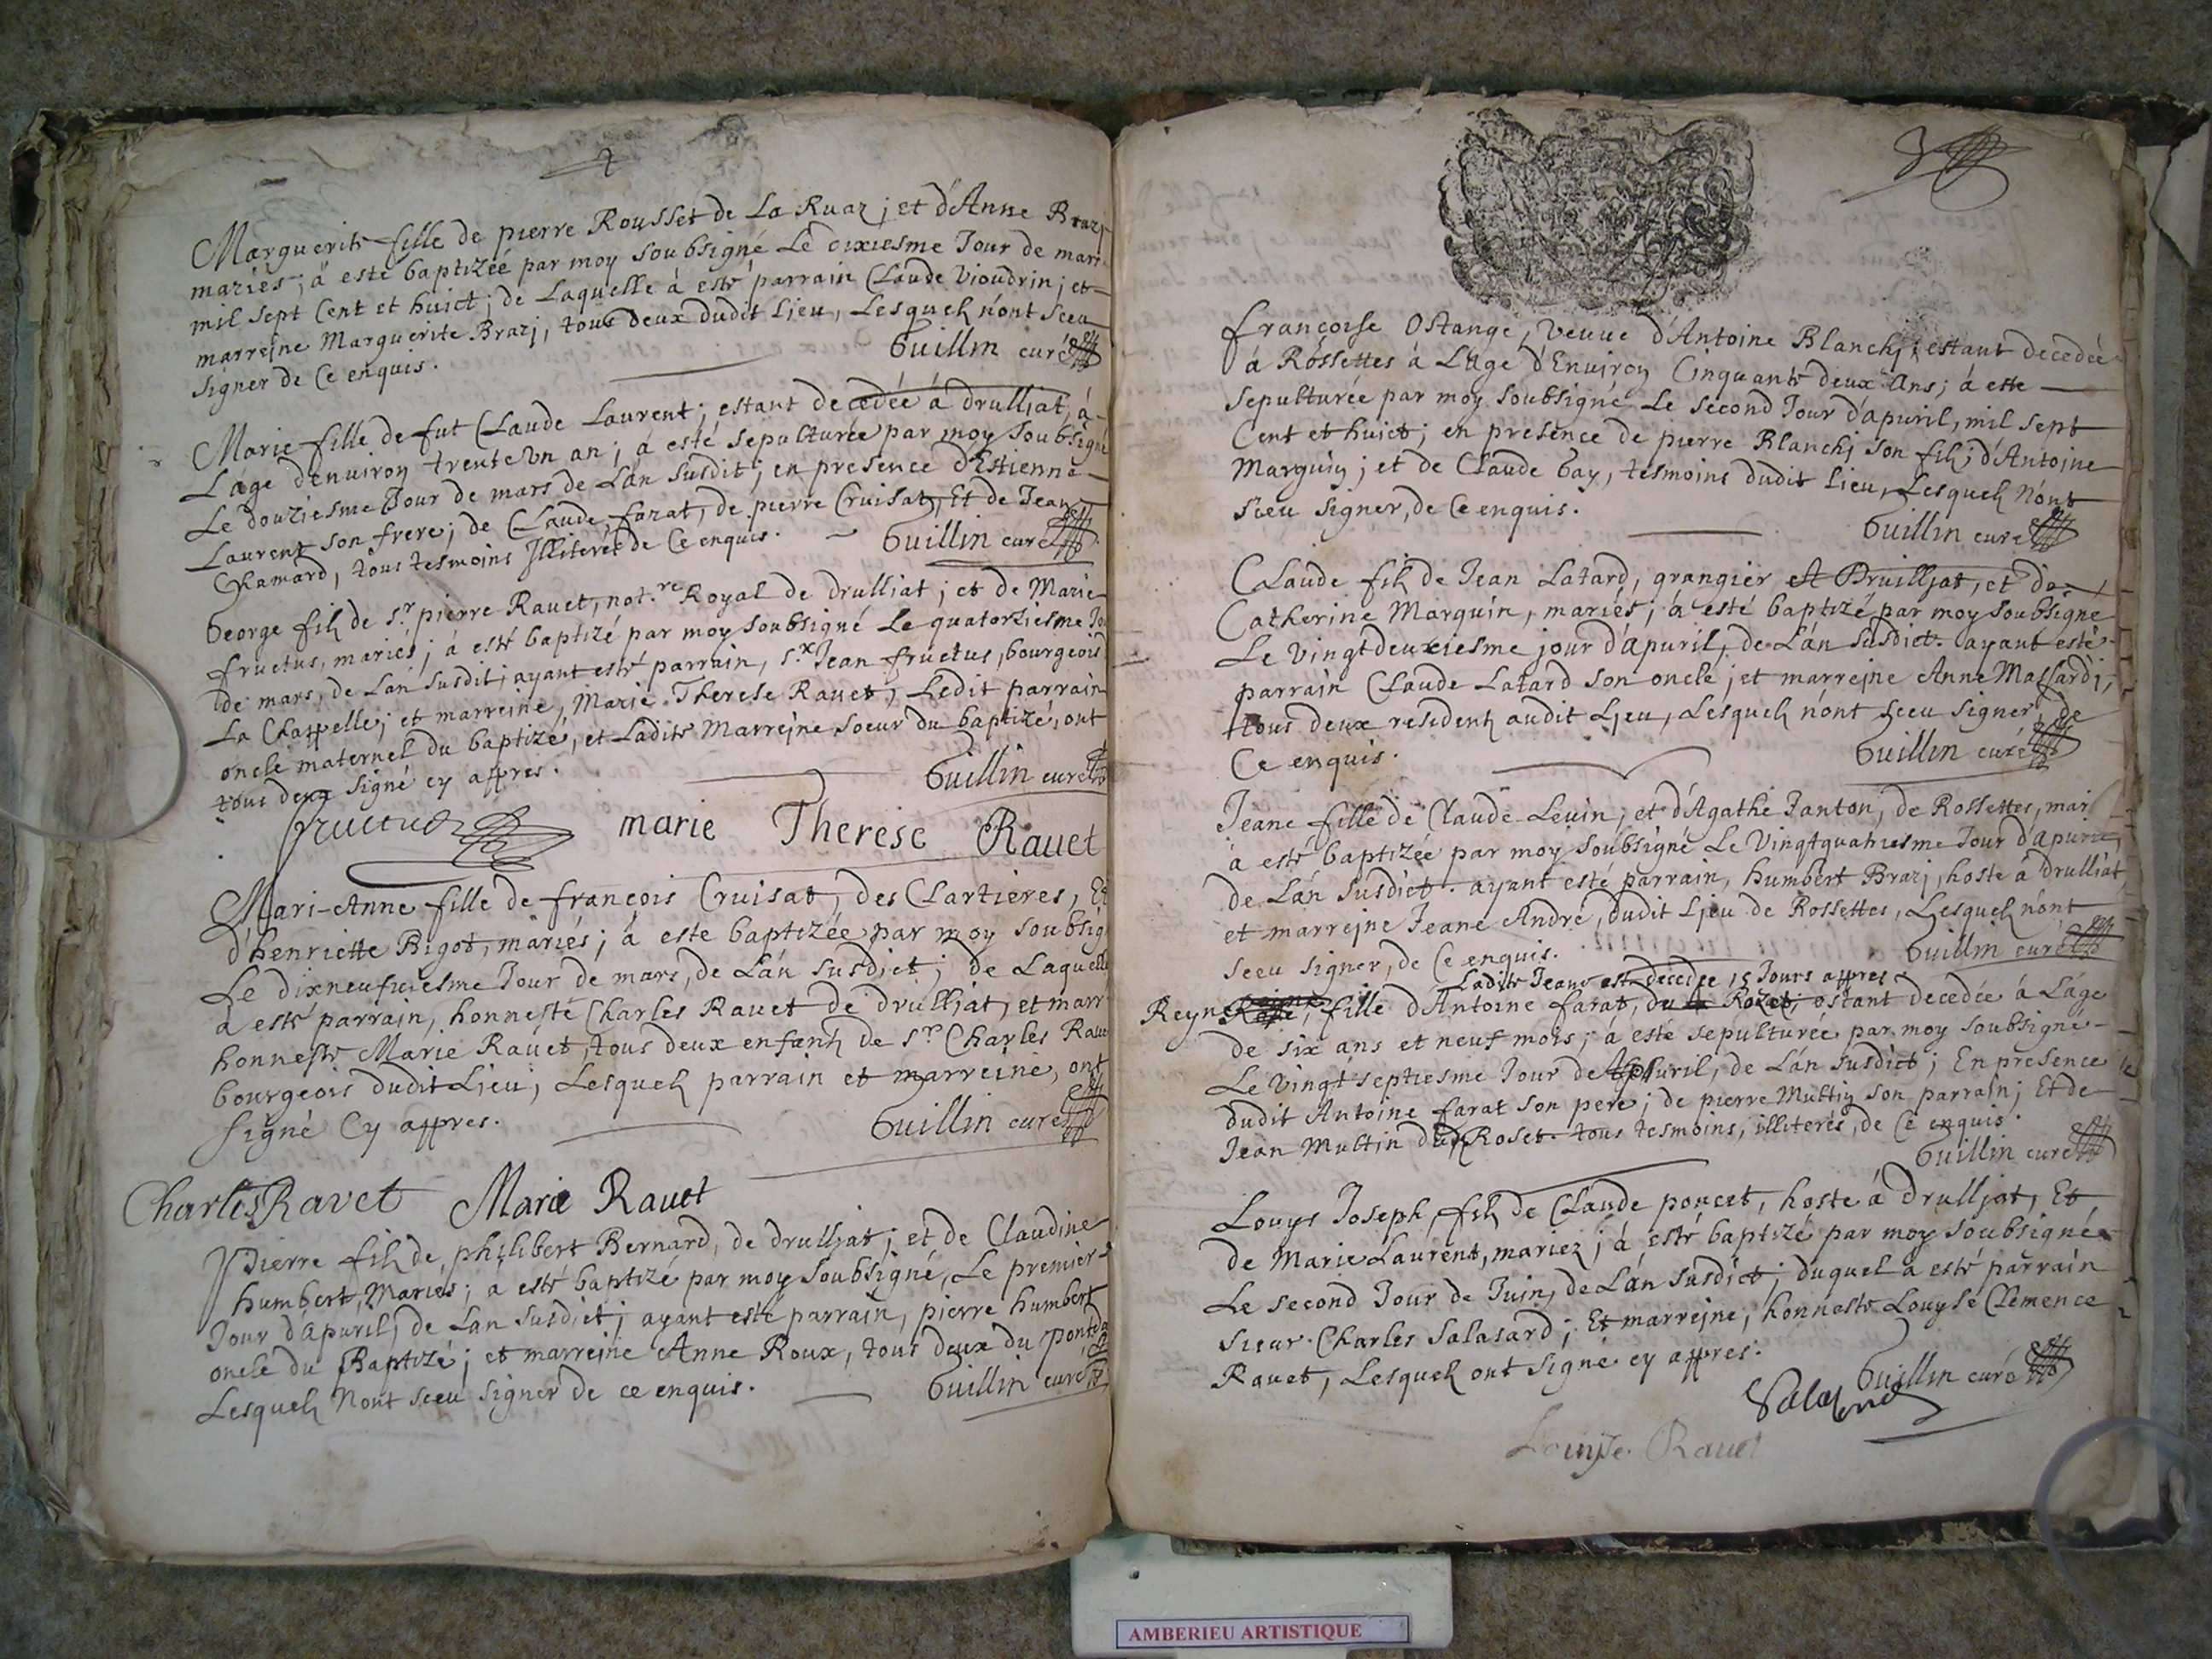 2
Marguerite fille de pierre Rousset de La Ruaz; et d'Anne Brazj
mariés; à esté baptizée par moy soubsigné Le dixiesme Jour de mars
mil sept Cent et huict; de Laquelle à esté parrain Claude Vioudrin; et
marrejne Marguerite Brazj, tous deux dudit Lieu, Lesquelz n'ont sceu
signer de Ce enquis.
Guillin curé
Marie fille de fut Claude Laurent; estant decedée à drulliat, à
L'áge d'enuiron trente vn an; à esté sepulturée par moy soubsigné
Le douziesme Jour de mars de L'án susdit; en presence d'Estienne
Laurent son frere; de Claude farat, de pierre Cruisat, Et de Jean
Chamard, tous tesmoins Jlliterés de Ce enquis.
Guillin curé
George filz de sr. pierre Rauet, not.re Royal de drulliat; et de Marie
fructus, mariés; à esté baptizé par moy soubsigné Le quatorziesme Jo
de mars, de L'án susdit; ayant esté parrain, sr. Jean fructus, bourgeois
La Chappelle; et marreine, Marie Therese Rauet; Ledit parrain
oncle maternel du baptizé, et Ladite Marrejne soeur du baptizé, ont
tous deux signé cy appres.
Guillin curé
fructus marie Therese Rauet
Mari-Anne fille de françois Cruisat, des Clartieres, Et
d'henriette Bigot, mariés; à esté baptizée par moy soubsig
Le dixneufuiesme Jour de mars, de L'án susdict; de Laquelle
à esté parrain, honneste Charles Rauet de drulljat, et marr
honneste Marie Rauet, tous deux enfantz de sr. Charles Raue
bourgeois dudit Lieu; Lesquelz parrain et marreine, ont
signé Cy appres.
Guillin curé
Charles Ravet Marie Rauet
Pierre filz de philibert Bernard, de drulljat; et de Claudine
humbert, Mariés; à esté baptizé par moy soubsigné, Le premier
Jour d'apuril, de L'án susdict; ayant esté parrain, pierre humbert
oncle du Baptizé; et marreine Anne Roux, tous deux du pont
Lesquelz N'ont sceu signer de ce enquis.
Guillin curé
françoise Ostange, Veuue d'Antoine Blanchj; estant decedée
à Rossettes à L'age d'Enuiron Cinquante deux Ans; à esté
sepulturée par moy soubsigné Le second Jour d'apuril, mil sept
Cent et huict; en presence de pierre Blanchj son filz; d'Antoine
Marguin; et de Claude Gay, tesmoins dudit Lieu, Lesquelz N'ont
sceu signer, de Ce enquis.
Guillin curé
Claude filz de Jean Latard, grangier à Druilljat, et de
Catherine Marguin, mariés; à esté baptizé par moy soubsigné
Le Vingtdeuxiesme jour d'apuril, de L'án susdict. ayant esté
parrain Claude Latard son oncle; et marrejne Anne Massardj;
tous deux residentz audit Ljeu, Lesquelz n'ont sceu signer, de
Ce enquis.
Guillin curé
Jeane fille de Claude Leuin; et d'Agathe Janton, de Rossettes, mar
à esté baptizée par moy soubsigné Le Vingtquatriesme Jour d'apuril,
de L'án susdict. ayant esté parrain, humbert Brazj, hoste à drulliat,
et marrejne Jeane André, dudit Ljeu de Rossettes, Lesquelz n'ont
sceu signer, de Ce enquis.
Guillin curé
Ladite Jeane est decedee 15 Jours appres
Reyne fille d'Antoine farat, du Rozet; estant decedée à L'áge
de six ans et neuf mois; à esté sepulturée par moy soubsigné
Le Vingt septiesme Jour de Apuril, de L'án susdict; En presence
dudit Antoine farat son pere; de pierre Multin son parrain; Et de
Jean Multin dud. Roset. tous tesmoins, illiterés, de Ce enquis.
Guillin curé
Louys Joseph, filz de Claude poncet, hoste à drulljat, Et
de Marie Laurent, mariez; à esté baptizé par moy soubsigné
Le second Jour de Juin, de L'án susdict; duquel a esté parrain
sieur Charles Salasard; Et marrejne, honneste Louyse Clemence
Rauet, Lesquelz ont signé cy appres.
Guillin curé
Salasard
Louyse Rauet
AMBERIEU ARTISTIQUE